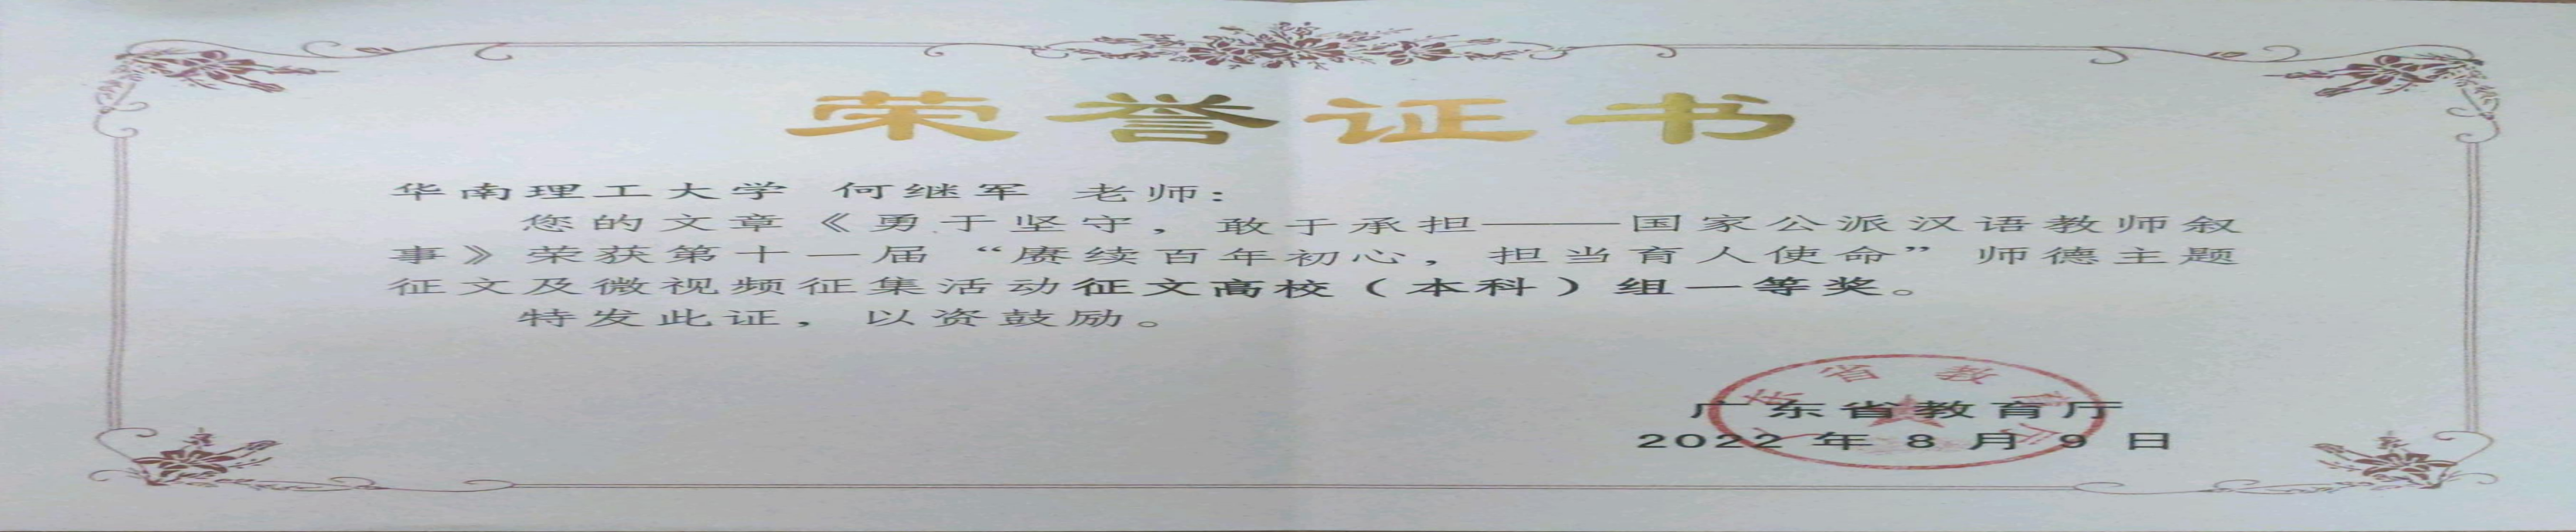 荣誉证书
华南理工大学 何继军 老师：
您的文章《勇于坚守，敢于承担——国家公派汉语教师叙
事》荣获第十一届“赓续百年初心，担当育人使命”师德主题
征文及微视频征集活动征文高校（本科）组一等奖。
特发此证，以资鼓励。
广东省教育厅
2022年8月9日